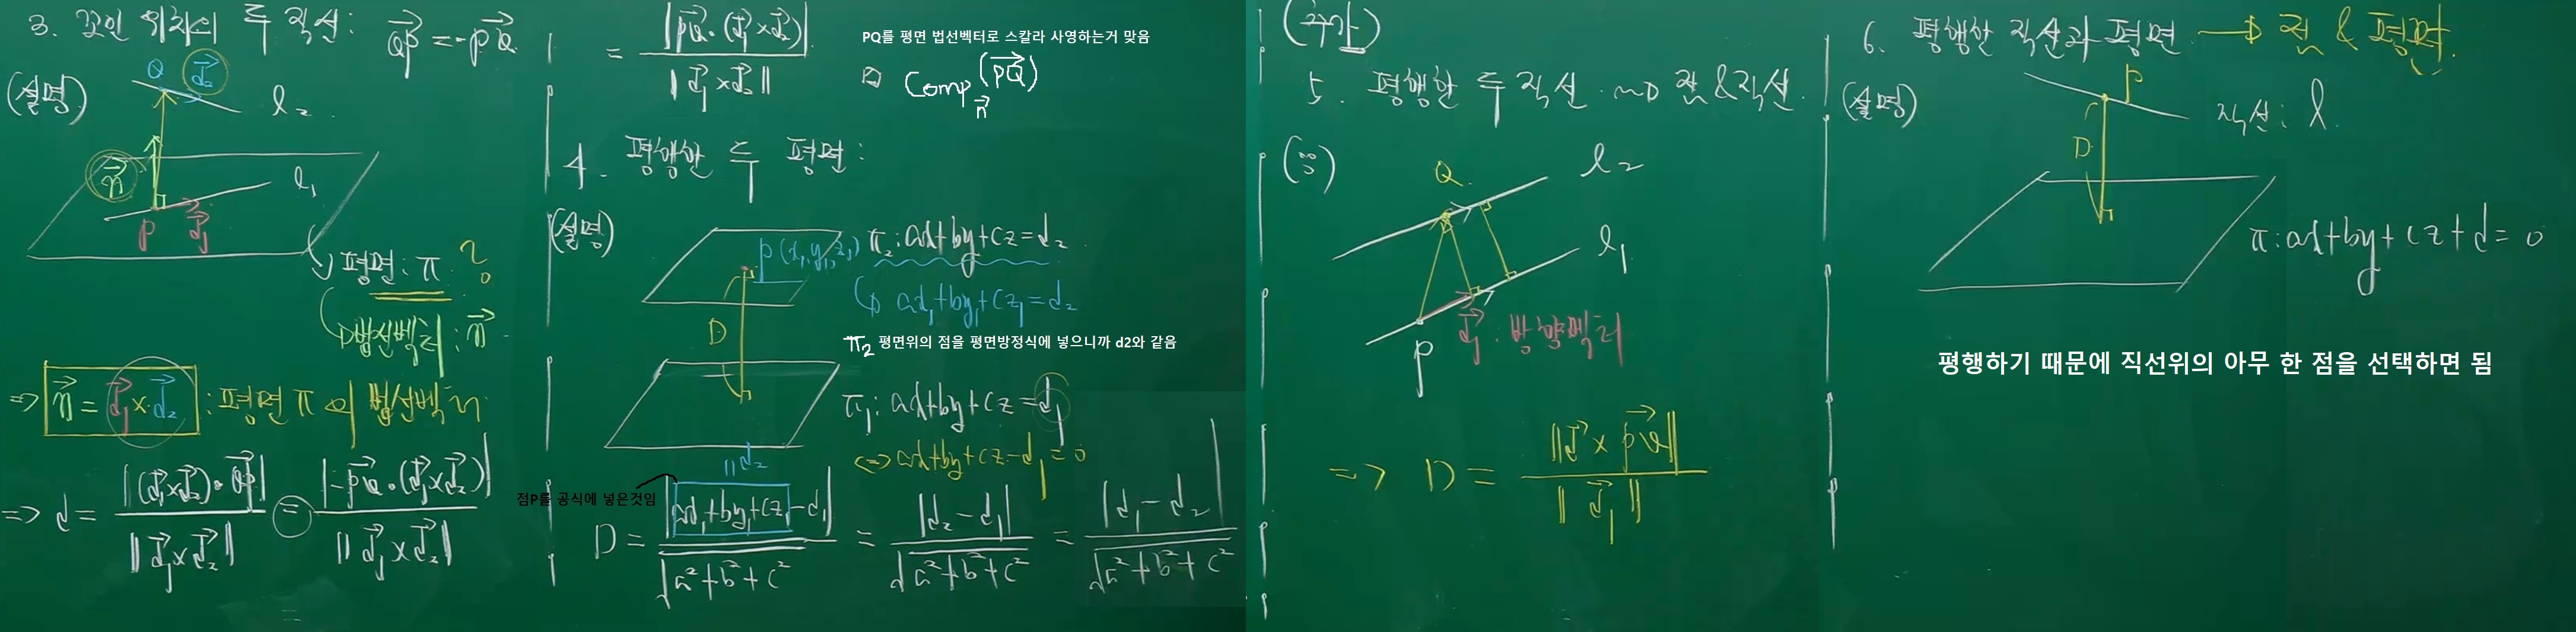 3. 꼬인 위치의 두 직선: $\overrightarrow{QP} = -\overrightarrow{PQ}$
(설명)
Q $\vec{d_2}$
$l_2$
$\vec{n}$
$l_1$
P $\vec{d_1}$
평면: π ?
법선벡터: $\vec{n}$
=> $\vec{n} = \vec{d_1} \times \vec{d_2}$ : 평면 π의 법선벡터
=> $d = \frac{|(\vec{d_1} \times \vec{d_2}) \cdot \overrightarrow{QP}|}{\|\vec{d_1} \times \vec{d_2}\|} = \frac{|-\overrightarrow{PQ} \cdot (\vec{d_1} \times \vec{d_2})|}{\|\vec{d_1} \times \vec{d_2}\|}$
$= \frac{|\overrightarrow{PQ} \cdot (\vec{d_1} \times \vec{d_2})|}{\|\vec{d_1} \times \vec{d_2}\|}$
PQ를 평면 법선벡터로 스칼라 사영하는거 맞음
$Comp_{\vec{n}}(\overrightarrow{PQ})$
4. 평행한 두 평면:
(설명)
$P(x_1, y_1, z_1)$
$π_2: ax+by+cz=d_2$
$ax_1+by_1+cz_1=d_2$
D
π₂ 평면위의 점을 평면방정식에 넣으니까 d2와 같음
$π_1: ax+by+cz=d_1$
<=> $ax+by+cz-d_1=0$
$\| d_2$
점P를 공식에 넣은것임
$D = \frac{|ax_1+by_1+cz_1-d_1|}{\sqrt{a^2+b^2+c^2}} = \frac{|d_2-d_1|}{\sqrt{a^2+b^2+c^2}} = \frac{|d_1-d_2|}{\sqrt{a^2+b^2+c^2}}$
(추가)
5. 평행한 두 직선 ~> 점&직선.
Q
$l_2$
$l_1$
P
$\vec{d_1}$: 방향벡터
=> $D = \frac{\|\vec{d} \times \overrightarrow{PQ}\|}{\|\vec{d_1}\|}$
6. 평행한 직선과 평면 → 점 & 평면.
(설명)
P
직선: $l$
D
$π: ax+by+cz+d=0$
평행하기 때문에 직선위의 아무 한 점을 선택하면 됨